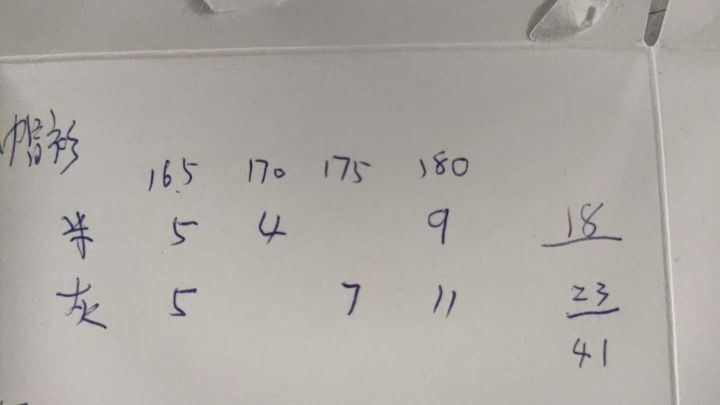 帽衫
165 170 175 180
米 5 4 9 18
灰 5 7 11 23
41